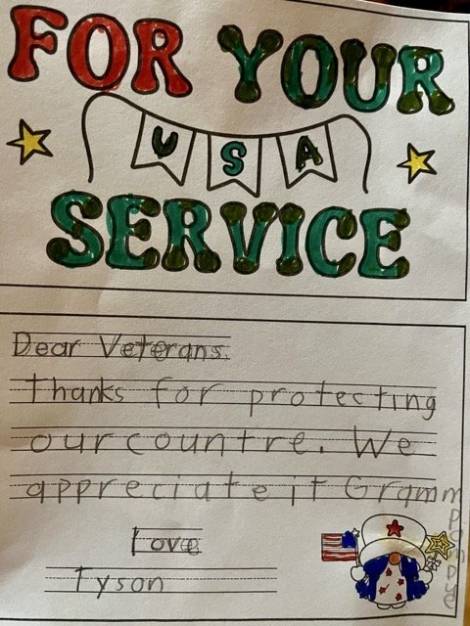 FOR YOUR
USA
SERVICE
Dear Veterans.
Thanks for protecting
our countre. We
appreciate it Gramm
Love
Tyson